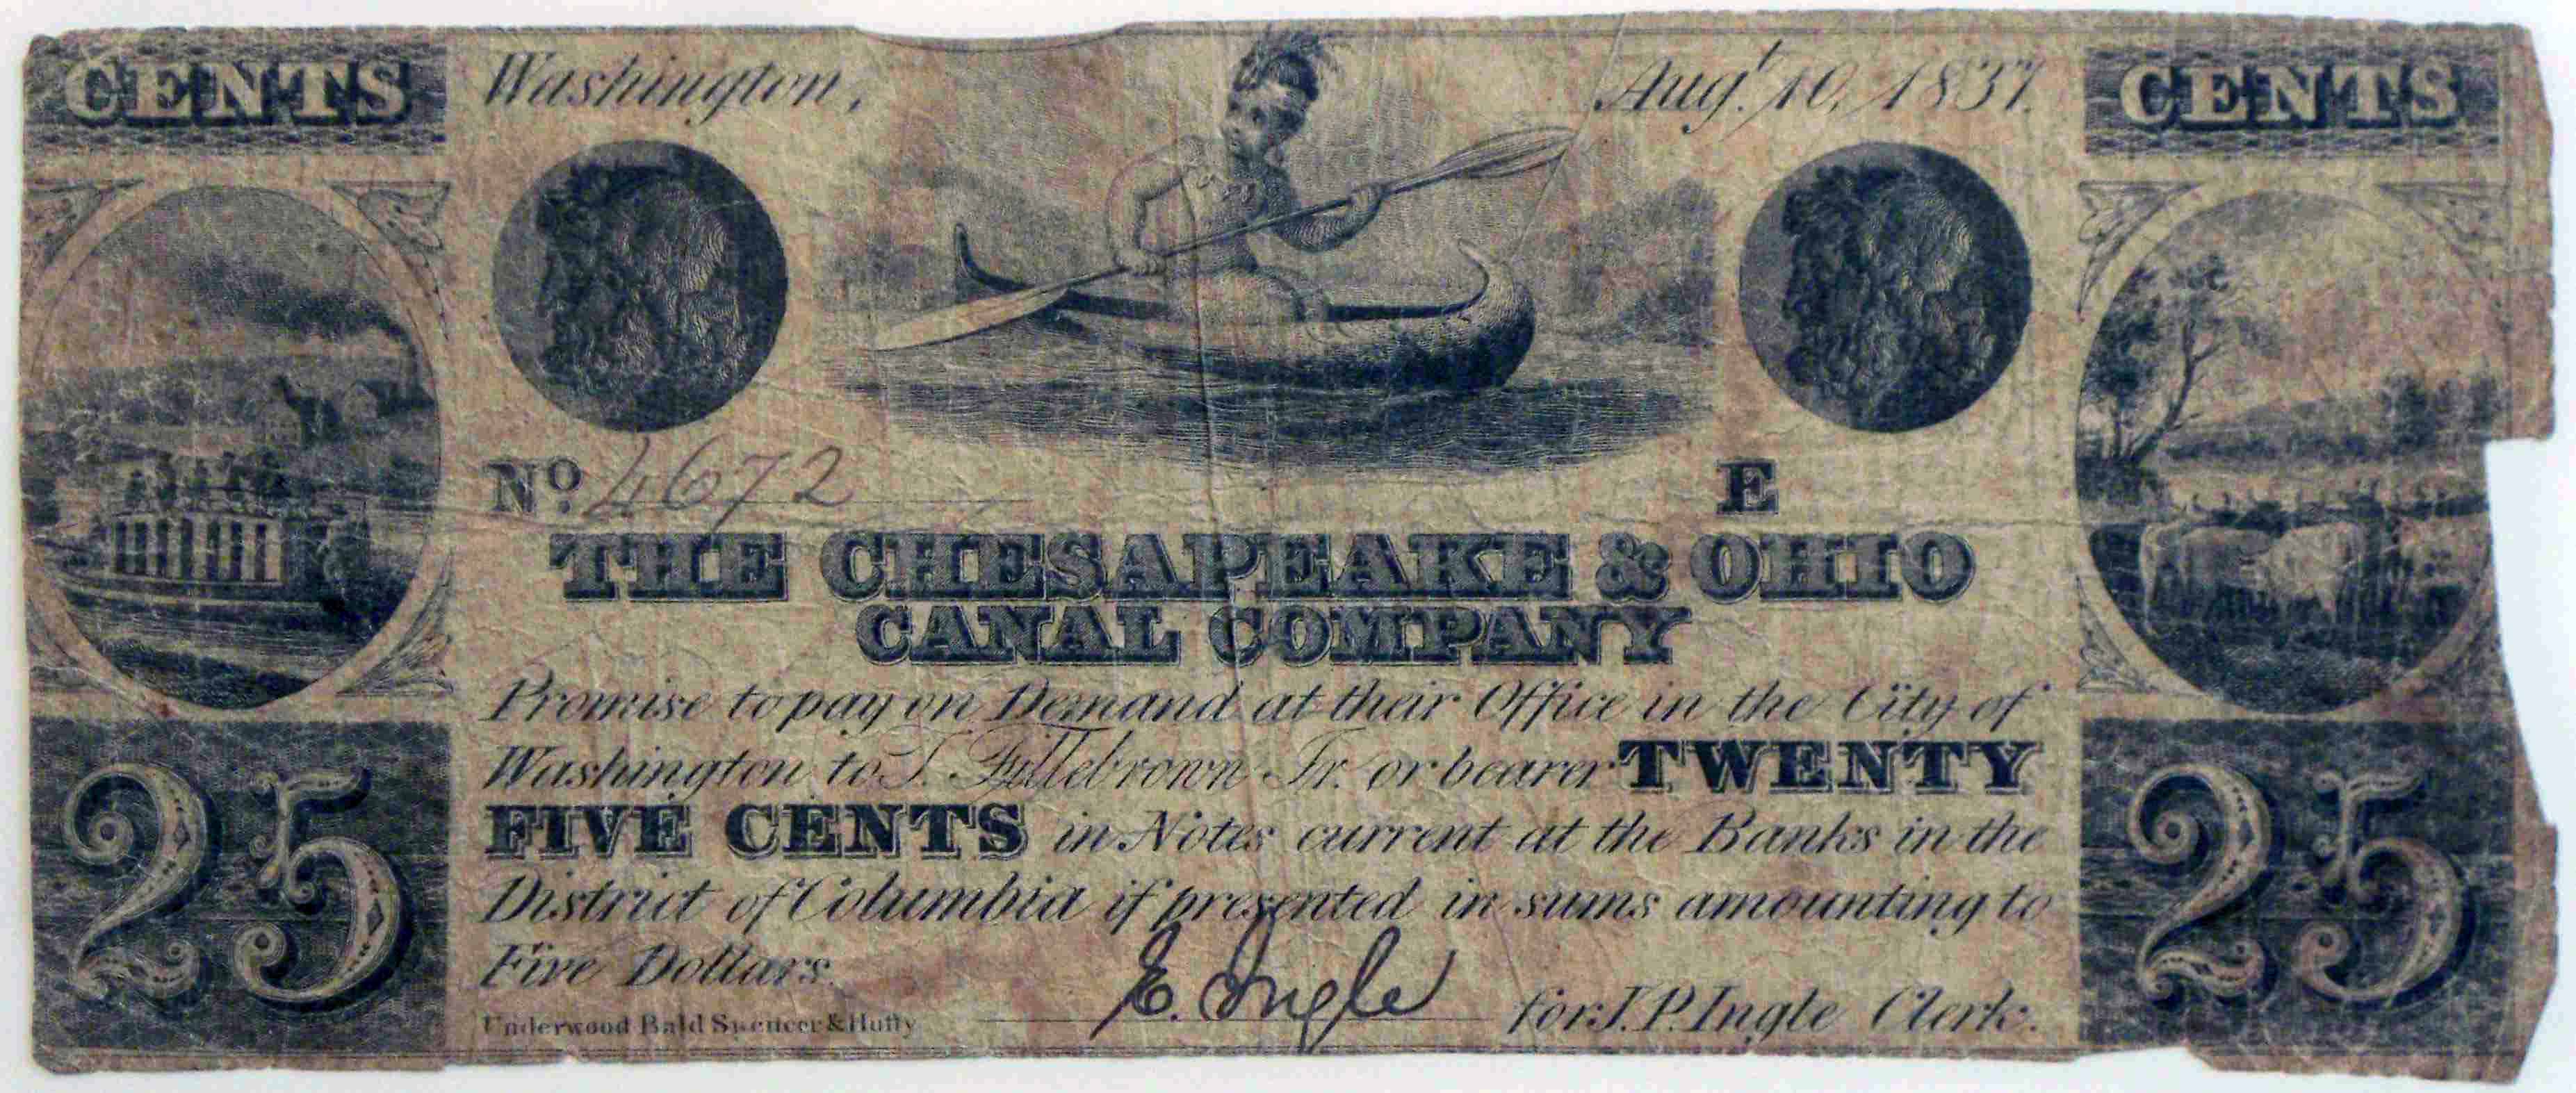 CENTS Washington, Augt. 10, 1837. CENTS
No. 4672
E
THE CHESAPEAKE & OHIO
CANAL COMPANY
Promise to pay on Demand at their Office in the City of
Washington to T. Fillebrown Jr. or bearer TWENTY
FIVE CENTS in Notes current at the Banks in the
District of Columbia if presented in sums amounting to
Five Dollars.
25 25
E. Ingle for J. P. Ingle Clerk.
Underwood Bald Spencer & Hufty